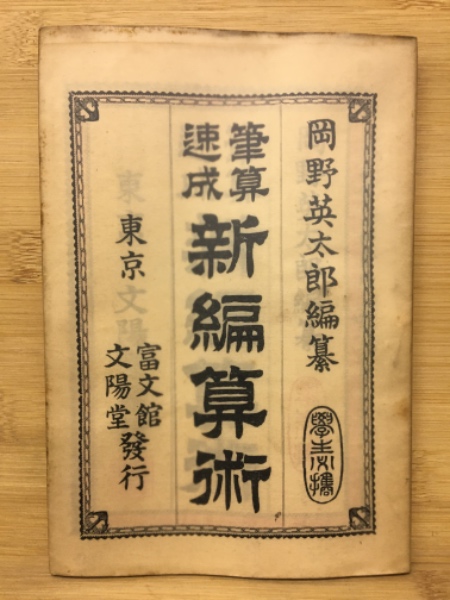 岡野英太郎編纂
筆算
速成
新編算術
東京
富文館
文陽堂
發行